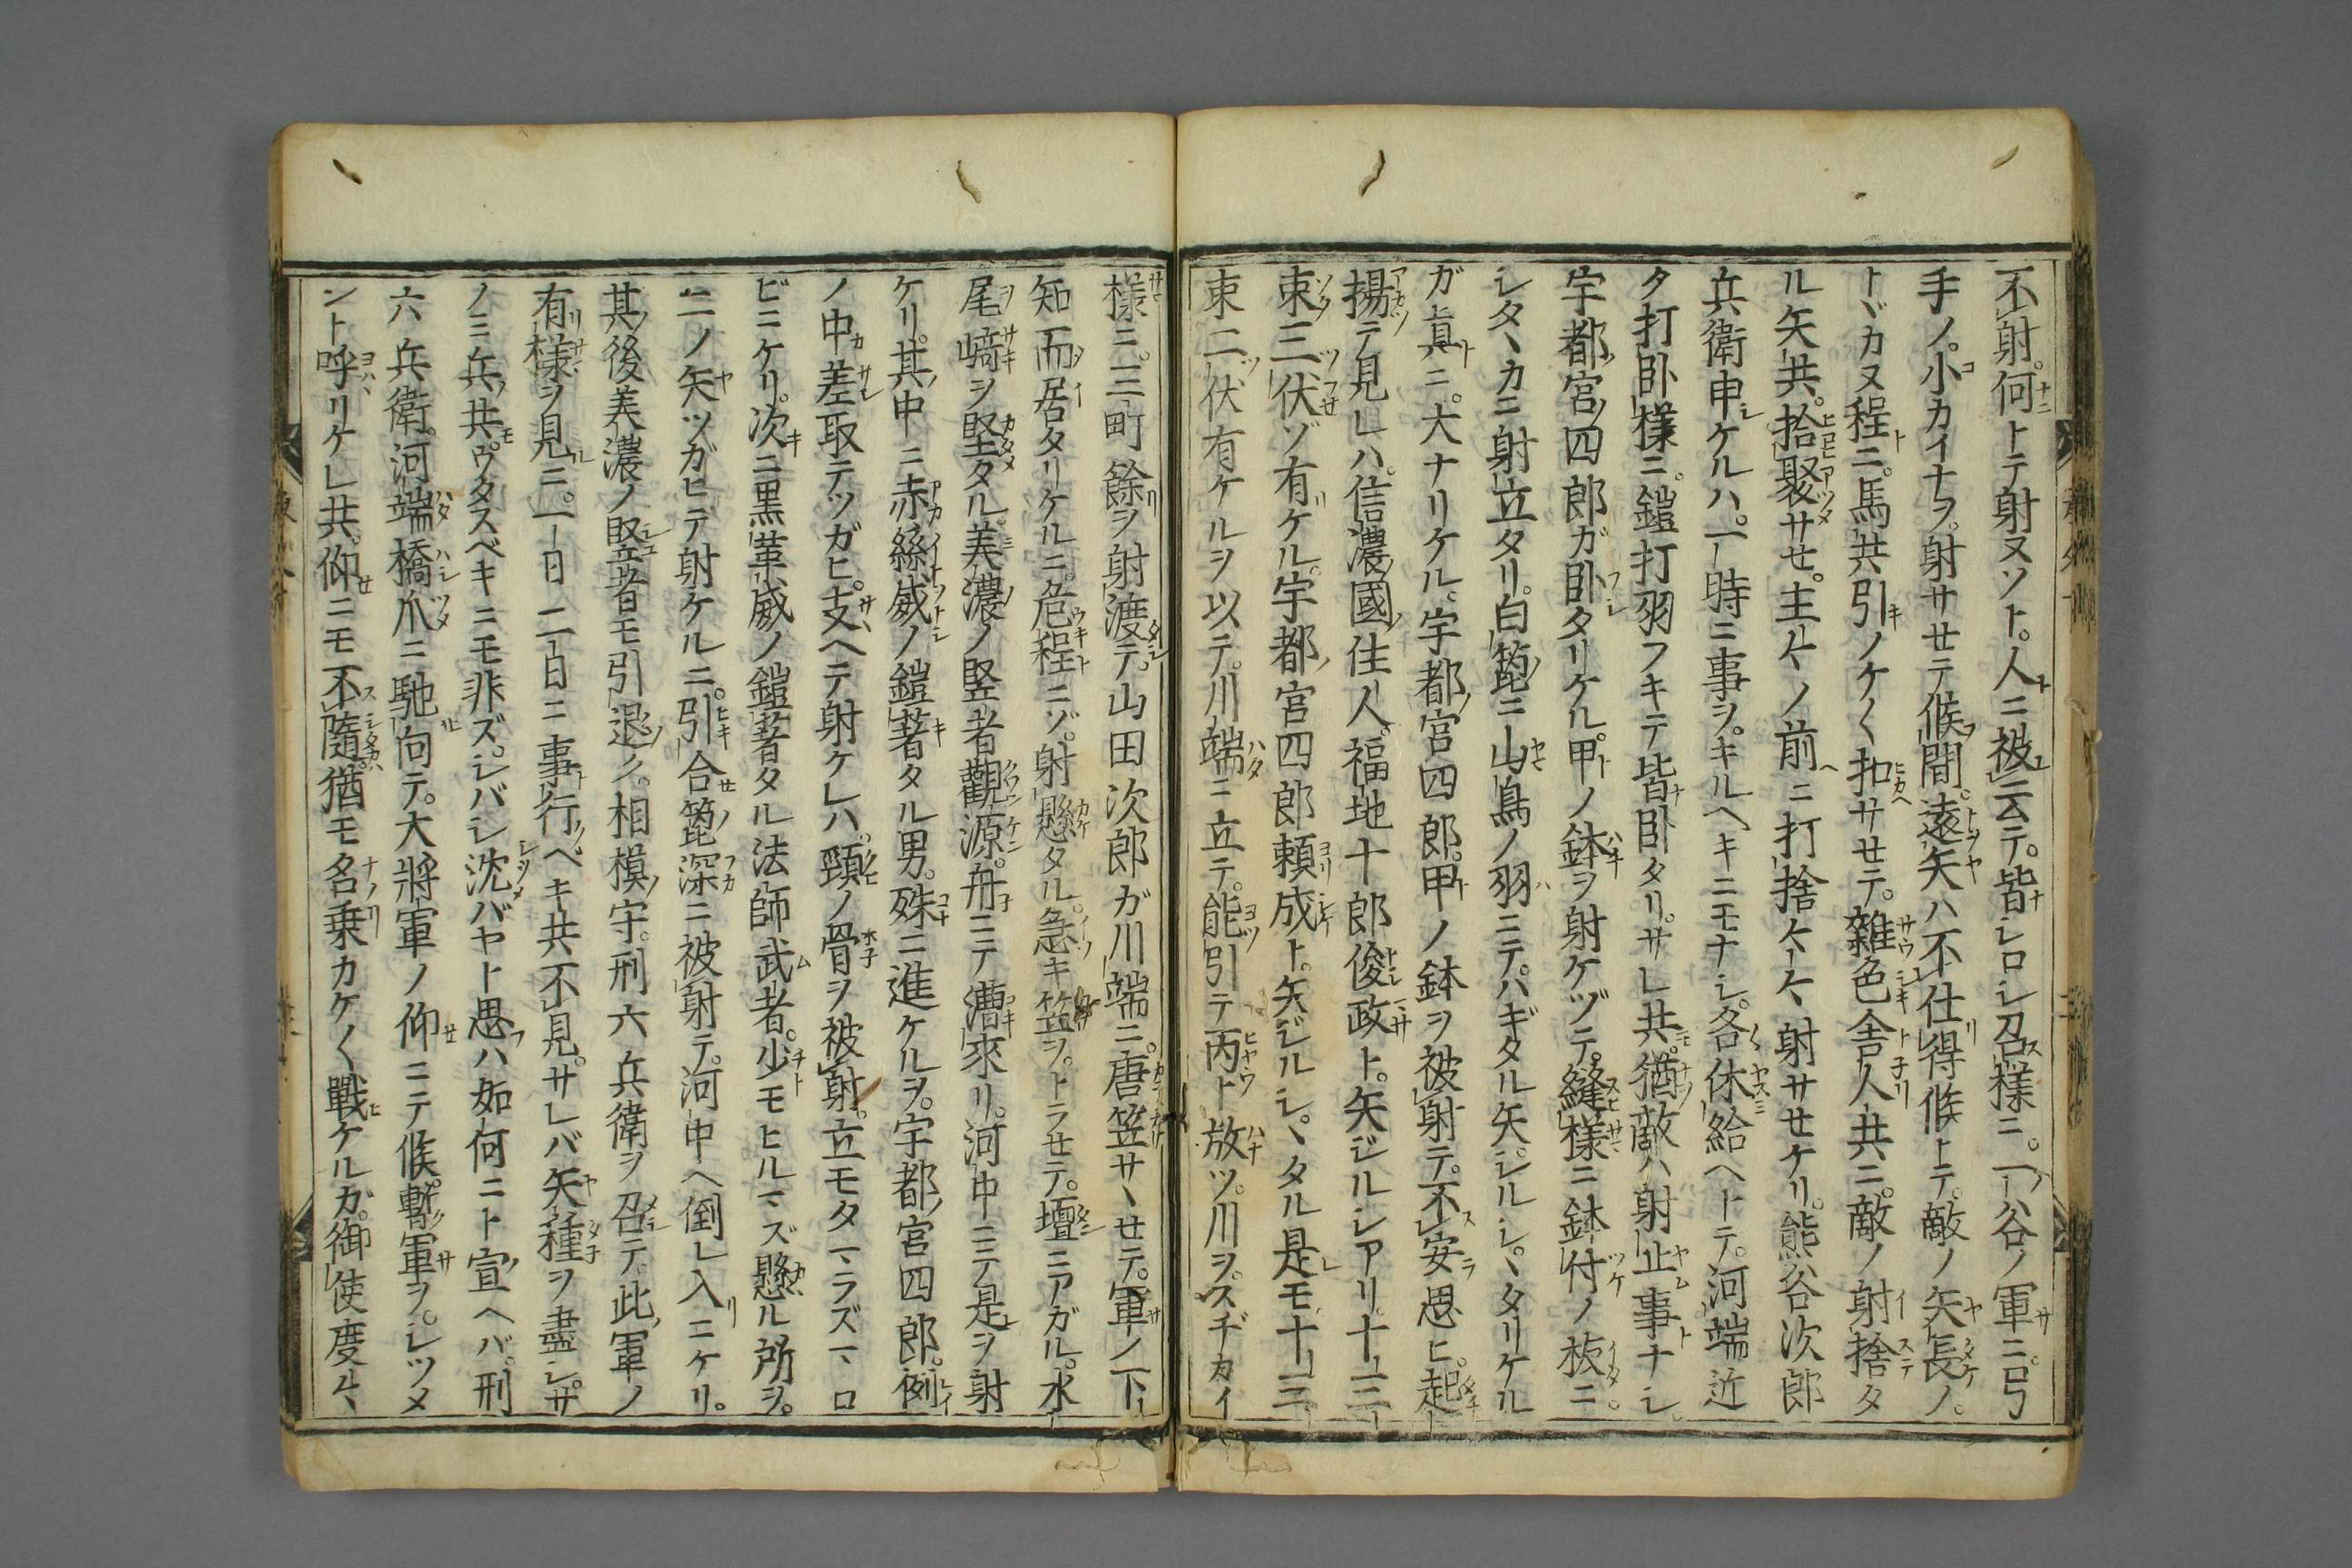 不射。何トテ射ヌソト。人ニ被云テ。皆シロシ召様ニ。一ノ谷ノ軍ニ。弓
手ノ。小カイナヲ。射サセテ候間。遠矢ハ不仕得候トテ。敵ノ矢長ノ。
トヾカヌ程ニ。馬共引ノケ〱扣サセテ。雑色舎人共ニ。敵ノ射捨タ
ル矢共。拾聚サセ。主々ノ前ニ打捨〱。射サセケリ。熊谷次郎
兵衛申ケルハ。一時ニ事ヲ。キルヘキニモナシ。各休給ヘトテ。河端近
ク打臥様ニ。鎧打羽フキテ皆臥タリ。サレ共。猶敵ハ射止事ナシ。
宇都宮ノ四郎ガ臥タリケル。甲ノ鉢ヲ射ケヅテ。縫様ニ鉢付ノ板ニ。
シタヽカニ射立タリ。白箆ニ山鳥ノ羽ニテハギタル矢。シルシヽタリケル
ガ真ニ。大ナリケル。宇都宮四郎。甲ノ鉢ヲ被射テ。不安思ヒ。起
揚テ見レハ。信濃國住人。福地十郎俊政ト。矢ジルシアリ。十三
束三伏ゾ有ゲル。宇都宮四郎頼成ト。矢ジルシヽタル。是モ十三
束二伏有ケルヲ以テ。川端ニ立テ。能引テ丙ト放ツ。川ヲ。スヂカイ
様ニ。三町餘ヲ射渡テ。山田次郎ガ川端ニ。唐笠サヽセテ。軍ノ下
知而居タリケルニ。危程ニゾ。射懸タル。急キ笠ヲ。トラセテ。壇ニアガル。水
尾﨑ヲ堅タル。美濃ノ竪者觀源。舟ニテ漕來リ。河中ニテ是ヲ射
ケリ。其中ニ赤絲威ノ鎧著タル男。殊ニ進ケルヲ。宇都宮四郎。例
ノ中差取テツガヒ。支ヘテ射ケレハ。頸ノ骨ヲ被射。立モタマラズマロ
ビニケリ。次ニ黒革威ノ鎧著タル法師武者。少モヒルマズ懸ル所ヲ。
二ノ矢ツガヒテ射ケルニ。引合箆深ニ被射テ。河中ヘ倒レ入ニケリ。
其後美濃ノ竪者モ引退ク。相模守。刑六兵衛ヲ召テ。此軍ノ
有様ヲ見ニ。一日二日ニ事行ベキ共不見。サレバ矢種ヲ盡シ。サ
ノミ兵共。ウタスベキニモ非ズ。シバシ沈バヤト思ハ如何ニト宣ヘバ。刑
六兵衛。河端橋爪ニ馳向テ。大將軍ノ仰ニテ候。暫軍ヲ。シツメ
ント呼リケレ共。仰ニモ不隨。猶モ名乗カケ〱戰ケルガ。御使度々